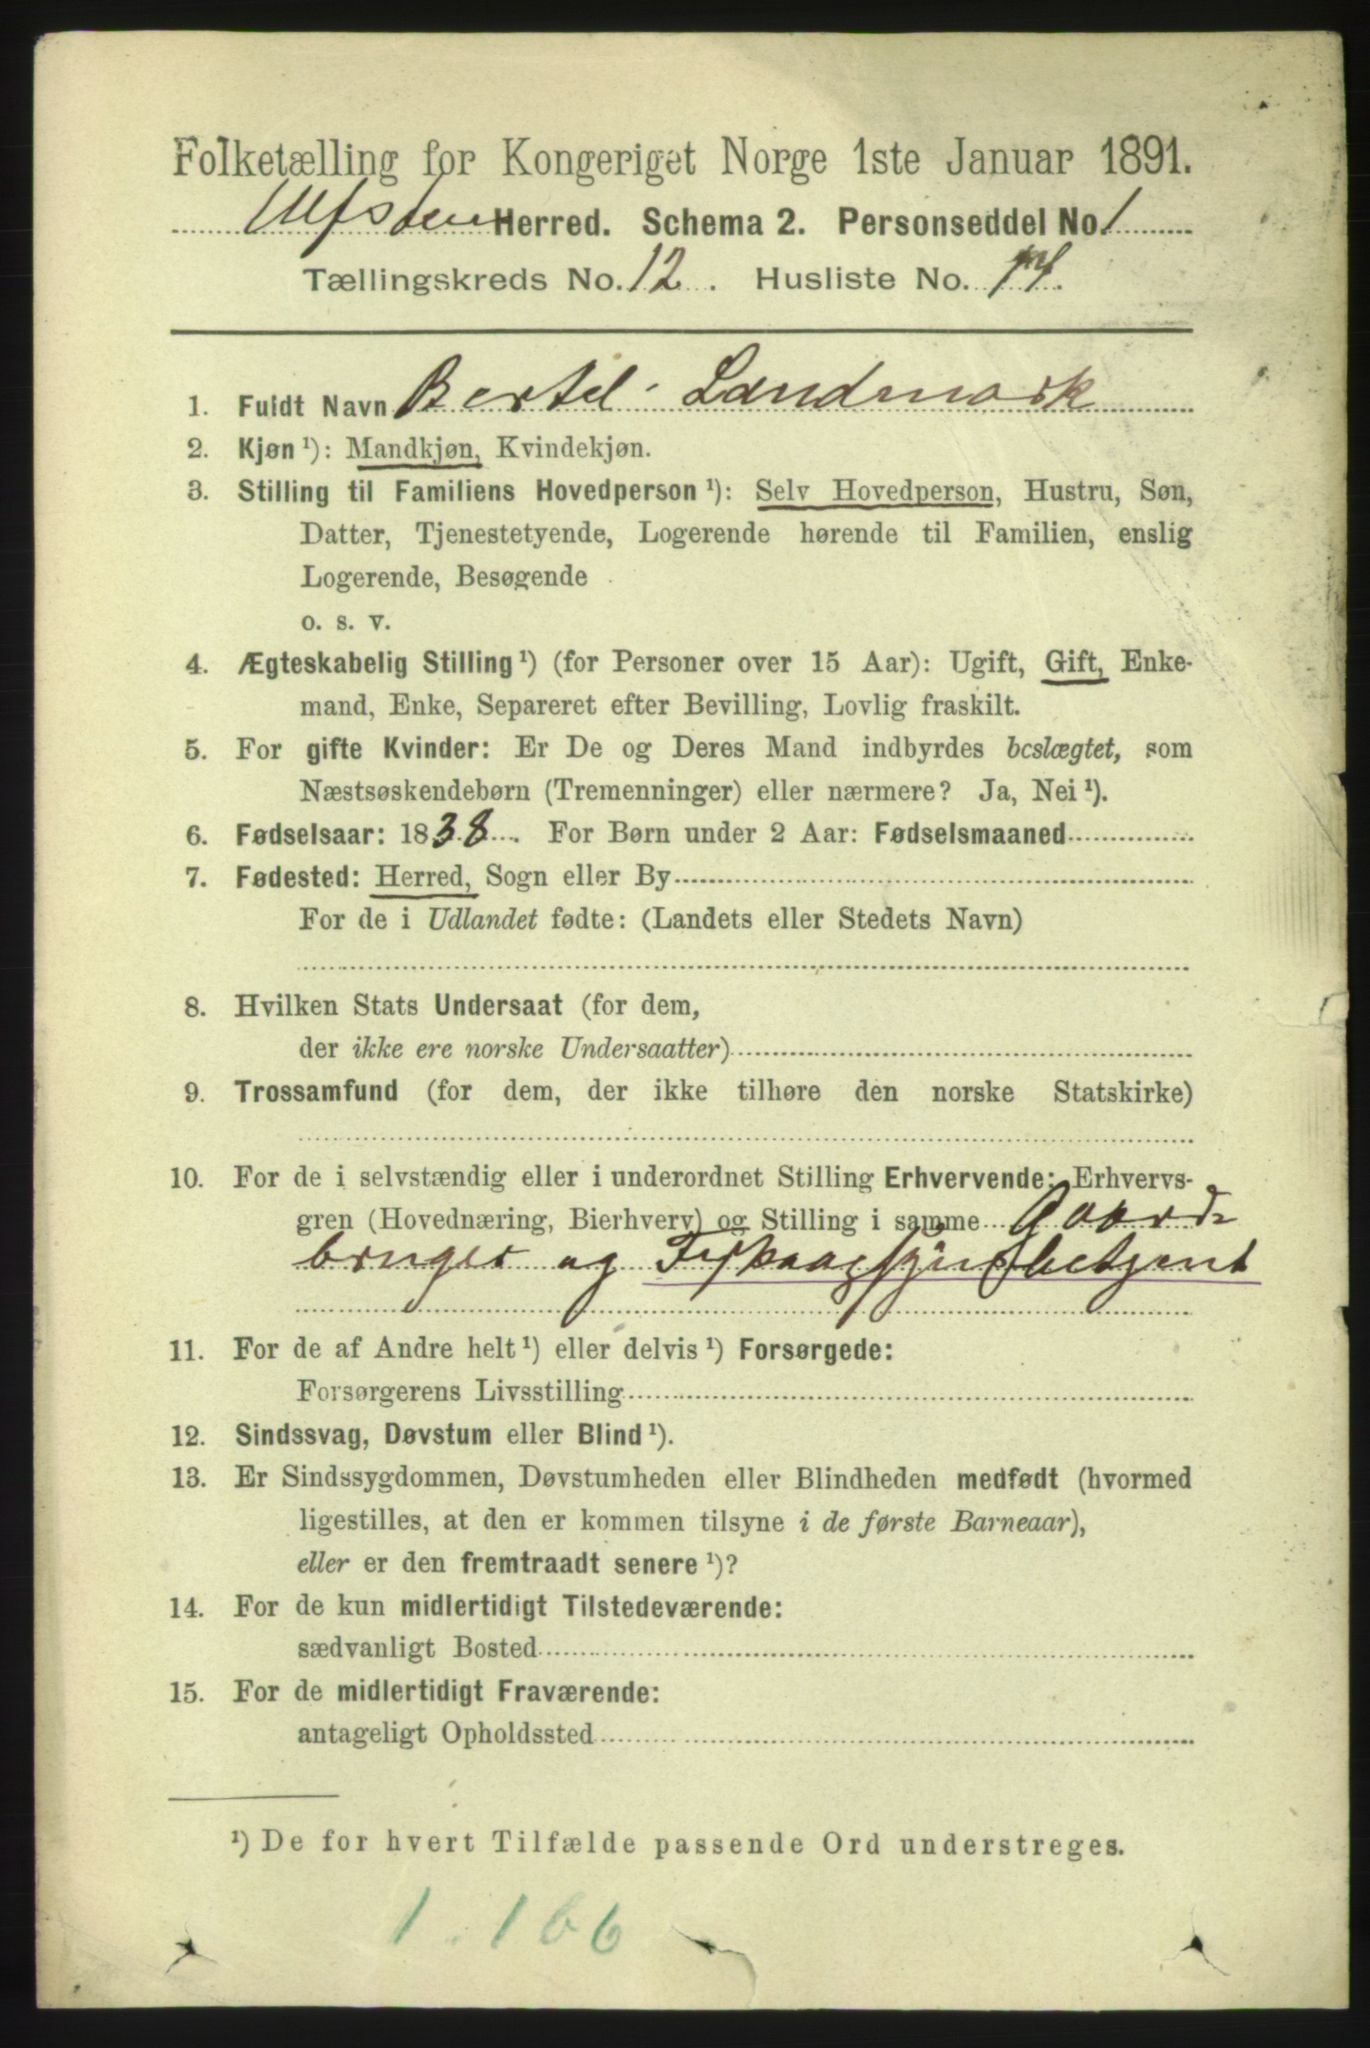 Folketælling for Kongeriget Norge 1ste Januar 1891.
Ulfsten Herred. Schema 2. Personseddel No. 1
Tællingskreds No. 12. Husliste No. 14.
1. Fuldt Navn Bertel Landmark
2. Kjøn¹): Mandkjøn, Kvindekjøn.
3. Stilling til Familiens Hovedperson¹): Selv Hovedperson, Hustru, Søn,
Datter, Tjenestetyende, Logerende hørende til Familien, enslig
Logerende, Besøgende
o. s. v.
4. Ægteskabelig Stilling¹) (for Personer over 15 Aar): Ugift, Gift, Enke-
mand, Enke, Separeret efter Bevilling, Lovlig fraskilt.
5. For gifte Kvinder: Er De og Deres Mand indbyrdes beslægtet, som
Næstsøskendebørn (Tremenninger) eller nærmere? Ja, Nei¹).
6. Fødselsaar: 1838. For Børn under 2 Aar: Fødselsmaaned
7. Fødested: Herred, Sogn eller By
For de i Udlandet fødte: (Landets eller Stedets Navn)
8. Hvilken Stats Undersaat (for dem,
der ikke ere norske Undersaatter)
9. Trossamfund (for dem, der ikke tilhøre den norske Statskirke)
10. For de i selvstændig eller i underordnet Stilling Erhvervende: Erhvervs-
gren (Hovednæring, Bierhverv) og Stilling i samme Gaard
bruger og betjent
11. For de af Andre helt¹) eller delvis¹) Forsørgede:
Forsørgerens Livsstilling
12. Sindssvag, Døvstum eller Blind¹).
13. Er Sindssygdommen, Døvstumheden eller Blindheden medfødt (hvormed
ligestilles, at den er kommen tilsyne i de første Barneaar),
eller er den fremtraadt senere¹)?
14. For de kun midlertidigt Tilstedeværende:
sædvanligt Bosted
15. For de midlertidigt Fraværende:
antageligt Opholdssted
¹) De for hvert Tilfælde passende Ord understreges.
1.166